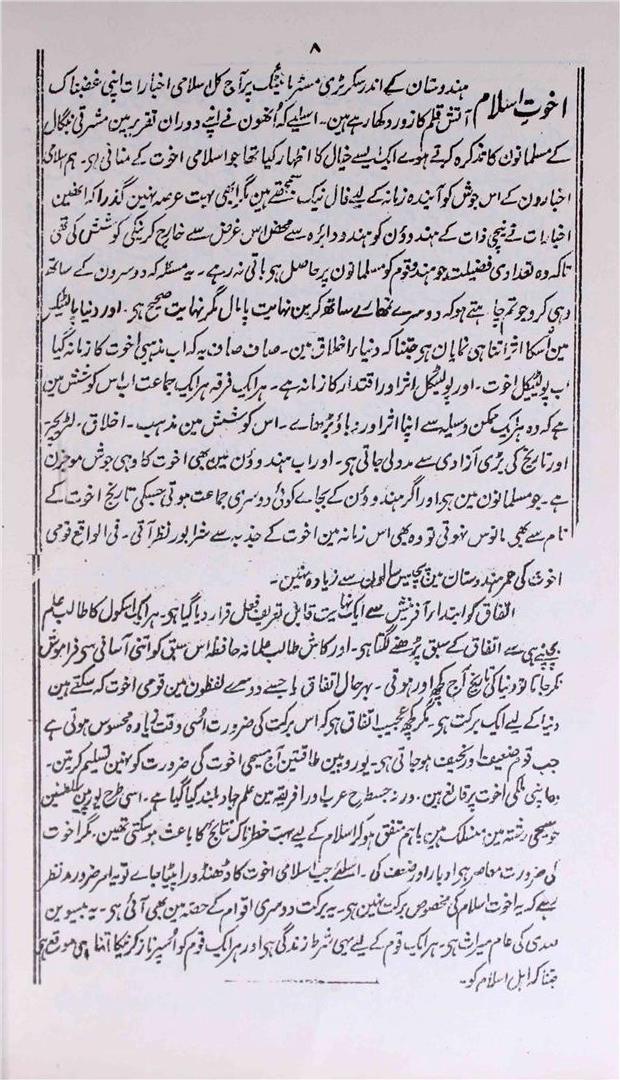 ۸
اخوتِ اسلام
ہندوستان کے اندر سکرٹری مسٹر مانٹیگ پر آج کل اسلامی اخبارات اپنی غضبناک
آتش قلم کا زور دکھا رہے ہین۔ اسلیے کہ اُنھون نے اپنے دوران تقریر مین مشرقی بنگال
کے مسلمانون کا تذکرہ کرتے ہوے ایک ایسے خیال کا اظہار کیا تھا جو اسلامی اخوت کے منافی ہی۔ ہم اسلامی
اخبارون کے اس جوش کو آیندہ زمانہ کے لیے فال نیک سمجھتے ہین مگر ابھی بہت عرصہ نہین گذرا کہ انھین
اخبارات نے نیچی ذات کے ہندوؤن کو ہندو دایرہ سے محض اس غرض سے خارج کرنیکی کوشش کی تھی
تاکہ وہ تعدادی فضیلت جو ہندو قوم کو مسلمانون پر حاصل ہی باقی نہ رہے۔ یہ مسئلہ کہ دوسرون کے ساتھ
وہی کرو جو تم چاہتے ہو کہ دوسرے تمھارے ساتھ کرین نہایت پامال مگر نہایت صحیح ہی۔ اور دنیاء پالٹیکس
مین اُسکا اثر اتنا ہی نمایان ہی جتنا کہ دنیاء اخلاق مین۔ صاف صاف یہ کہ اب مذہبی اُخوت کا زمانہ گیا
اب پولٹیکل اخوت۔ اور پولٹیکل اثر اور اقتدار کا زمانہ ہے۔ ہر ایک فرقہ ہر ایک جماعت اب اس کوشش مین
ہے کہ وہ ہر ایک ممکن وسیلہ سے اپنا اثر اور دباؤ بڑھاے۔ اس کوشش مین مذہب۔ اخلاق۔ لٹریچر۔
اور تاریخ کی بڑی آزادی سے مدد لی جاتی ہی۔ اور اب ہندوؤن مین بھی اخوت کا وہی جوش موجزن
ہے۔ جو مسلمانون مین ہی اور اگر ہندوؤن کے بجاے کوئی دوسری جماعت ہوتی جسکی تاریخ اخوت کے
نام سے بھی مانوس نہوتی تو وہ بھی اس زمانہ مین اخوت کے جذبہ سے شرابور نظر آتی۔ فی الواقع قومی
اخوت کی عمر ہندوستان مین پچیس سالون سے زیادہ نہین۔
اتفاق کو ابتداء آفرینش سے ایک نہایت قابل تعریف فعل قرار دیا گیا ہی۔ ہر ایک اسکول کا طالب علم
بچپنے ہی سے اتفاق کے سبق پڑھنے لگتا ہی۔ اور کاش طالب علمانہ حافظہ اس سبق کو اتنی آسانی سی فراموش
نکر جاتا تو دنیا کی تاریخ آج کچھ اور ہوتی۔ بہرحال اتفاق یا جسے دوسرے لفظون مین قومی اخوت کہ سکتے ہین
دنیا کے لیے ایک برکت ہی۔ مگر کچھ عجیب اتفاق ہی کہ اس برکت کی ضرورت اُسی وقت زیادہ محسوس ہوتی ہے
جب قوم ضعیف اور نحیف ہو جاتی ہی۔ یوروپین طاقتین آج مسیحی اخوت کی ضرورت کو نہین تسلیم کرتین۔
وہ اپنی ملکی اخوت پر قانع ہین۔ ورنہ جسطرح عرب اور افریقہ مین علم جہاد بلند کیا گیا ہے۔ اسی طرح یورپین سلطنتین
جو مسیحی رشتہ مین منسلک ہین باہم متفق ہو کر اسلام کے لیے بہت خطرناک نتایج کا باعث ہو سکتی تھین۔ مگر اخوت
کی ضرورت معاصر ہی ادبار اور ضعف کی۔ اسلئے جب اسلامی اخوت کا ڈھنڈورا پیٹا جاے تو یہ امر ضرور مد نظر
رہے کہ یہ اخوت اسلام کی مخصوص برکت نہین ہی۔ یہ برکت دوسری اقوام کے حصہ مین بھی آئی ہی۔ یہ بیسوین
صدی کی عام میراث ہی۔ ہر ایک قوم کے لیے یہی شرط زندگی ہی اور ہر ایک قوم کو اُسپر ناز کرنیکا اتنا ہی موقع ہی
جتنا کہ اہل اسلام کو۔